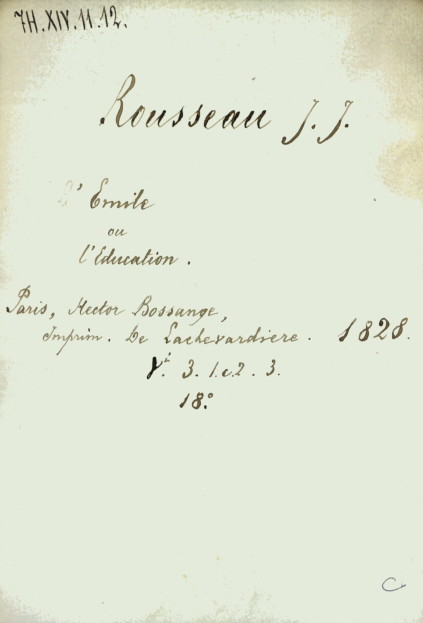 7H.XIV.11.12.
Rousseau J. J.
L' Emile
ou
l'Education.
Paris, Hector Bossange,
Imprim. De Lachevardiere. 1828.
3. 1. c. 2. 3.
18.º
C